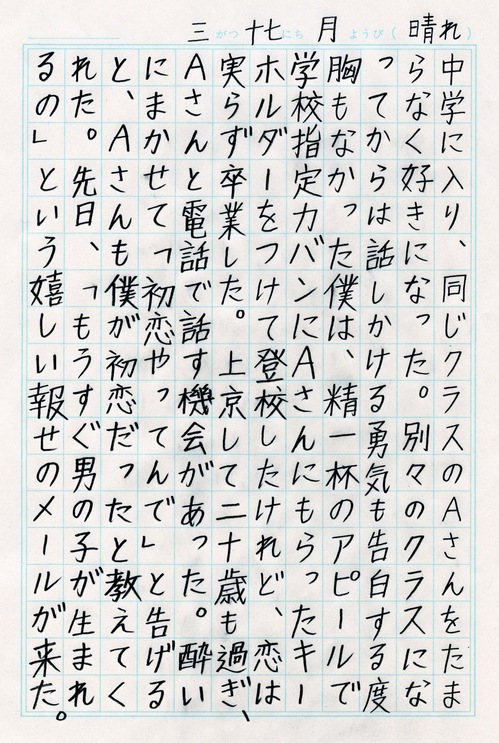 三がつ十七にち月ようび(晴れ)
中学に入り、同じクラスのAさんをたま
らなく好きになった。別々のクラスにな
ってからは話しかける勇気も告白する度
胸もなかった僕は、精一杯のアピールで
学校指定カバンにAさんにもらったキー
ホルダーをつけて登校したけれど、恋は
実らず卒業した。上京して二十歳も過ぎ、
Aさんと電話で話す機会があった。酔い
にまかせて「初恋やってんで」と告げる
と、Aさんも僕が初恋だったと教えてく
れた。先日、「もうすぐ男の子が生まれ
るの」という嬉しい報せのメールが来た。